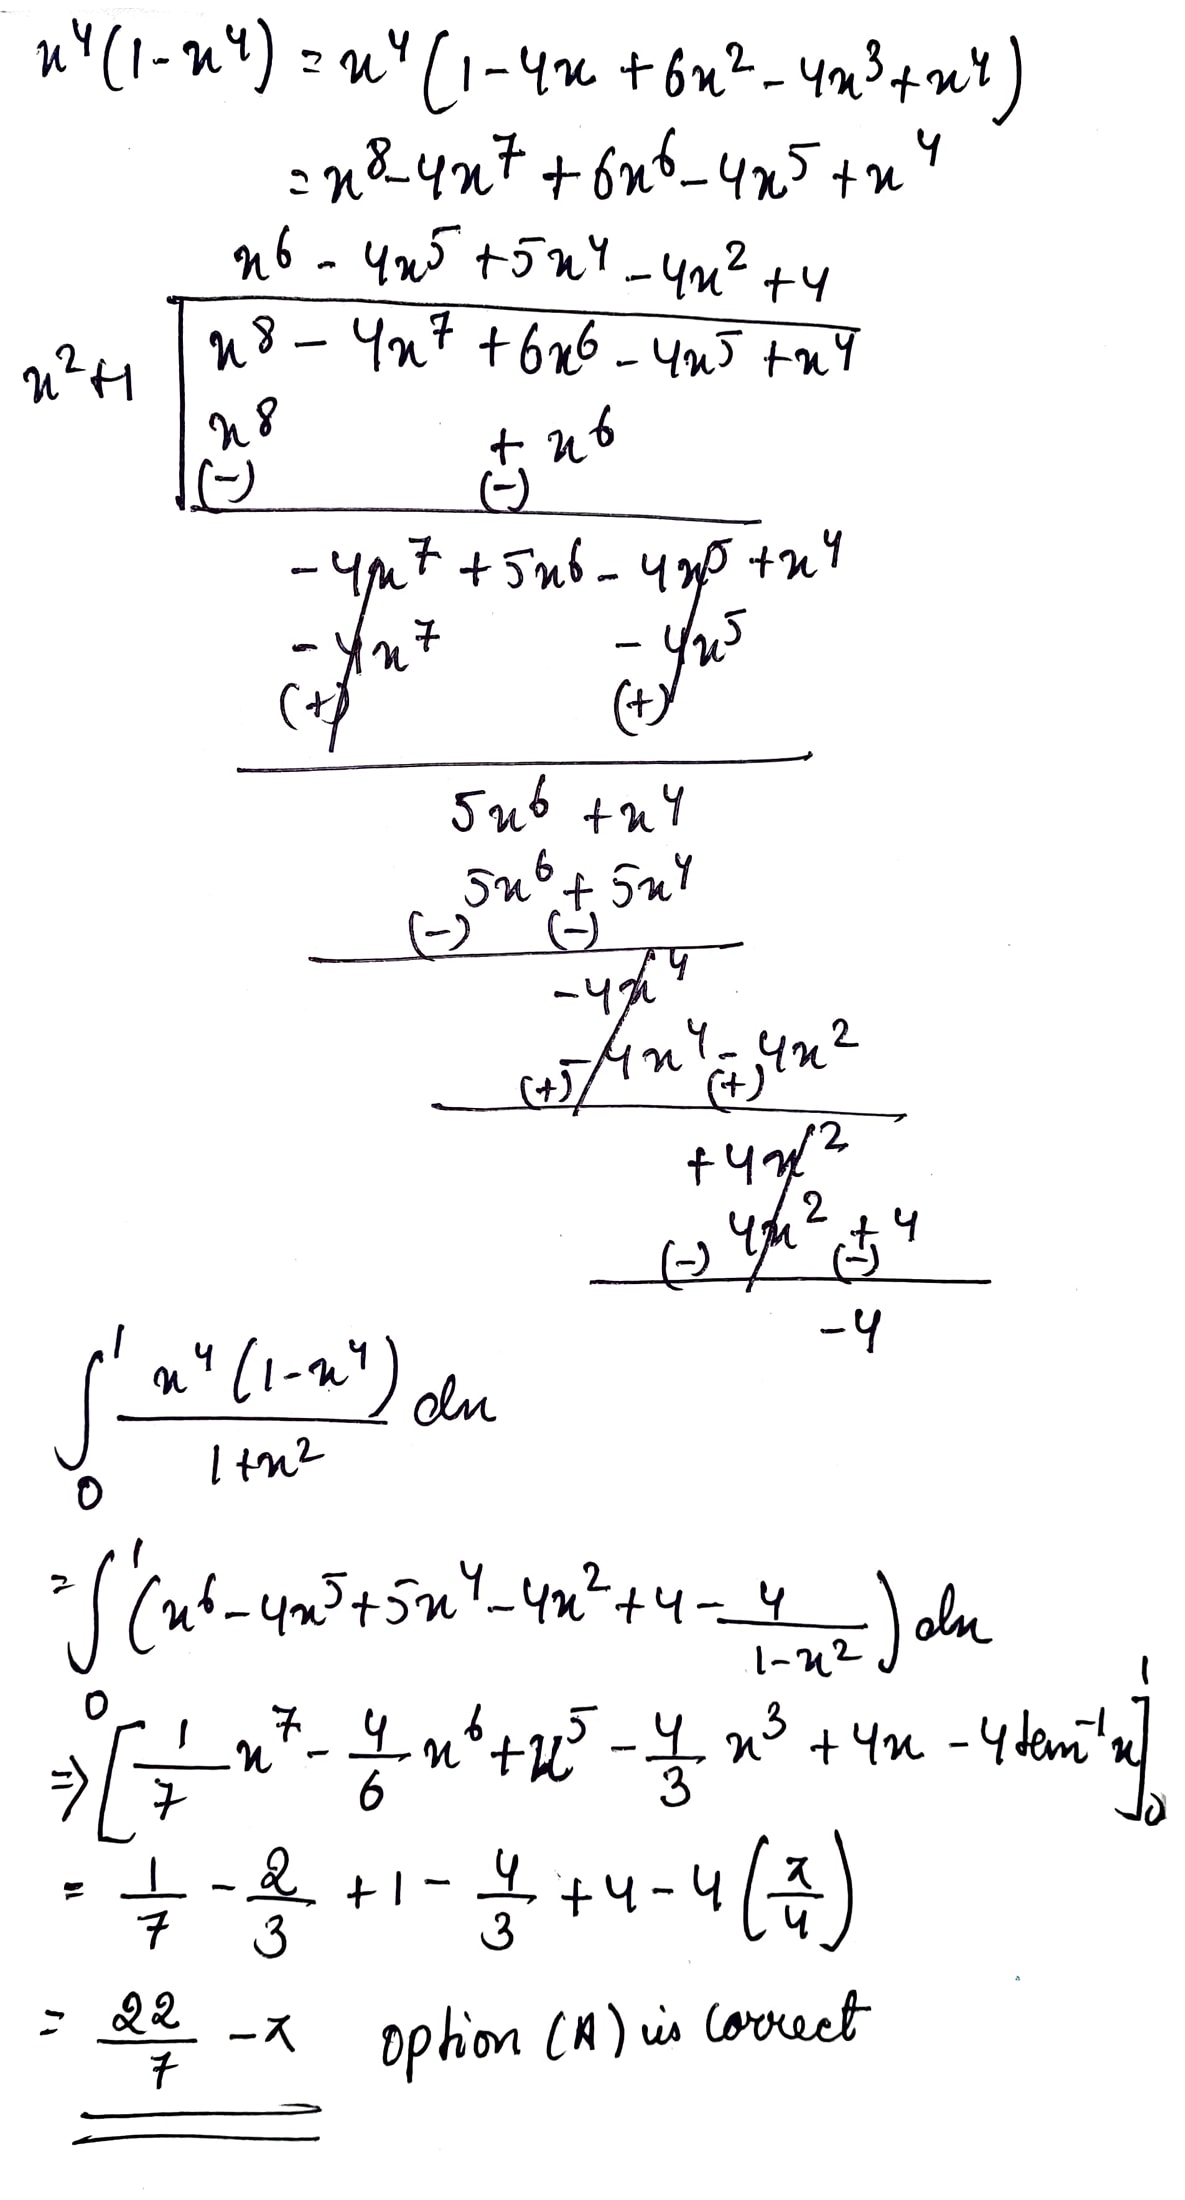 x⁴(1-x⁴) = x⁴(1-4x+6x²-4x³+x⁴)
= x⁸-4x⁷+6x⁶-4x⁵+x⁴
x⁶-4x⁵+5x⁴-4x²+4
x²+1 x⁸-4x⁷+6x⁶-4x⁵+x⁴
x⁸ + x⁶
(-) (-)
-4x⁷+5x⁶-4x⁵+x⁴
-4x⁷ -4x⁵
(+) (+)
5x⁶+x⁴
5x⁶+5x⁴
(-) (-)
-4x⁴
-4x⁴-4x²
(+) (+)
+4x²
4x²+4
(-) (-)
-4
∫₀¹ x⁴(1-x⁴)/(1+x²) dx
= ∫₀¹ (x⁶-4x⁵+5x⁴-4x²+4-4/(1-x²)) dx
⇒ [1/7 x⁷ - 4/6 x⁶ + x⁵ - 4/3 x³ + 4x - 4 tan⁻¹x]₀¹
= 1/7 - 2/3 + 1 - 4/3 + 4 - 4(π/4)
= 22/7 - π option (A) is correct